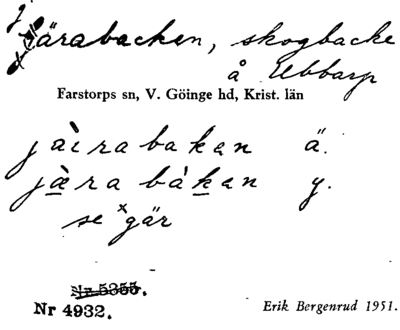 Järabacken, skogbacke
å Ubbarp
Farstorps sn, V. Göinge hd, Krist. län
jàirabakan ä.
jàrabàkan y.
se ˣgär
Nr 5355.
Nr 4932.
Erik Bergenrud 1951.